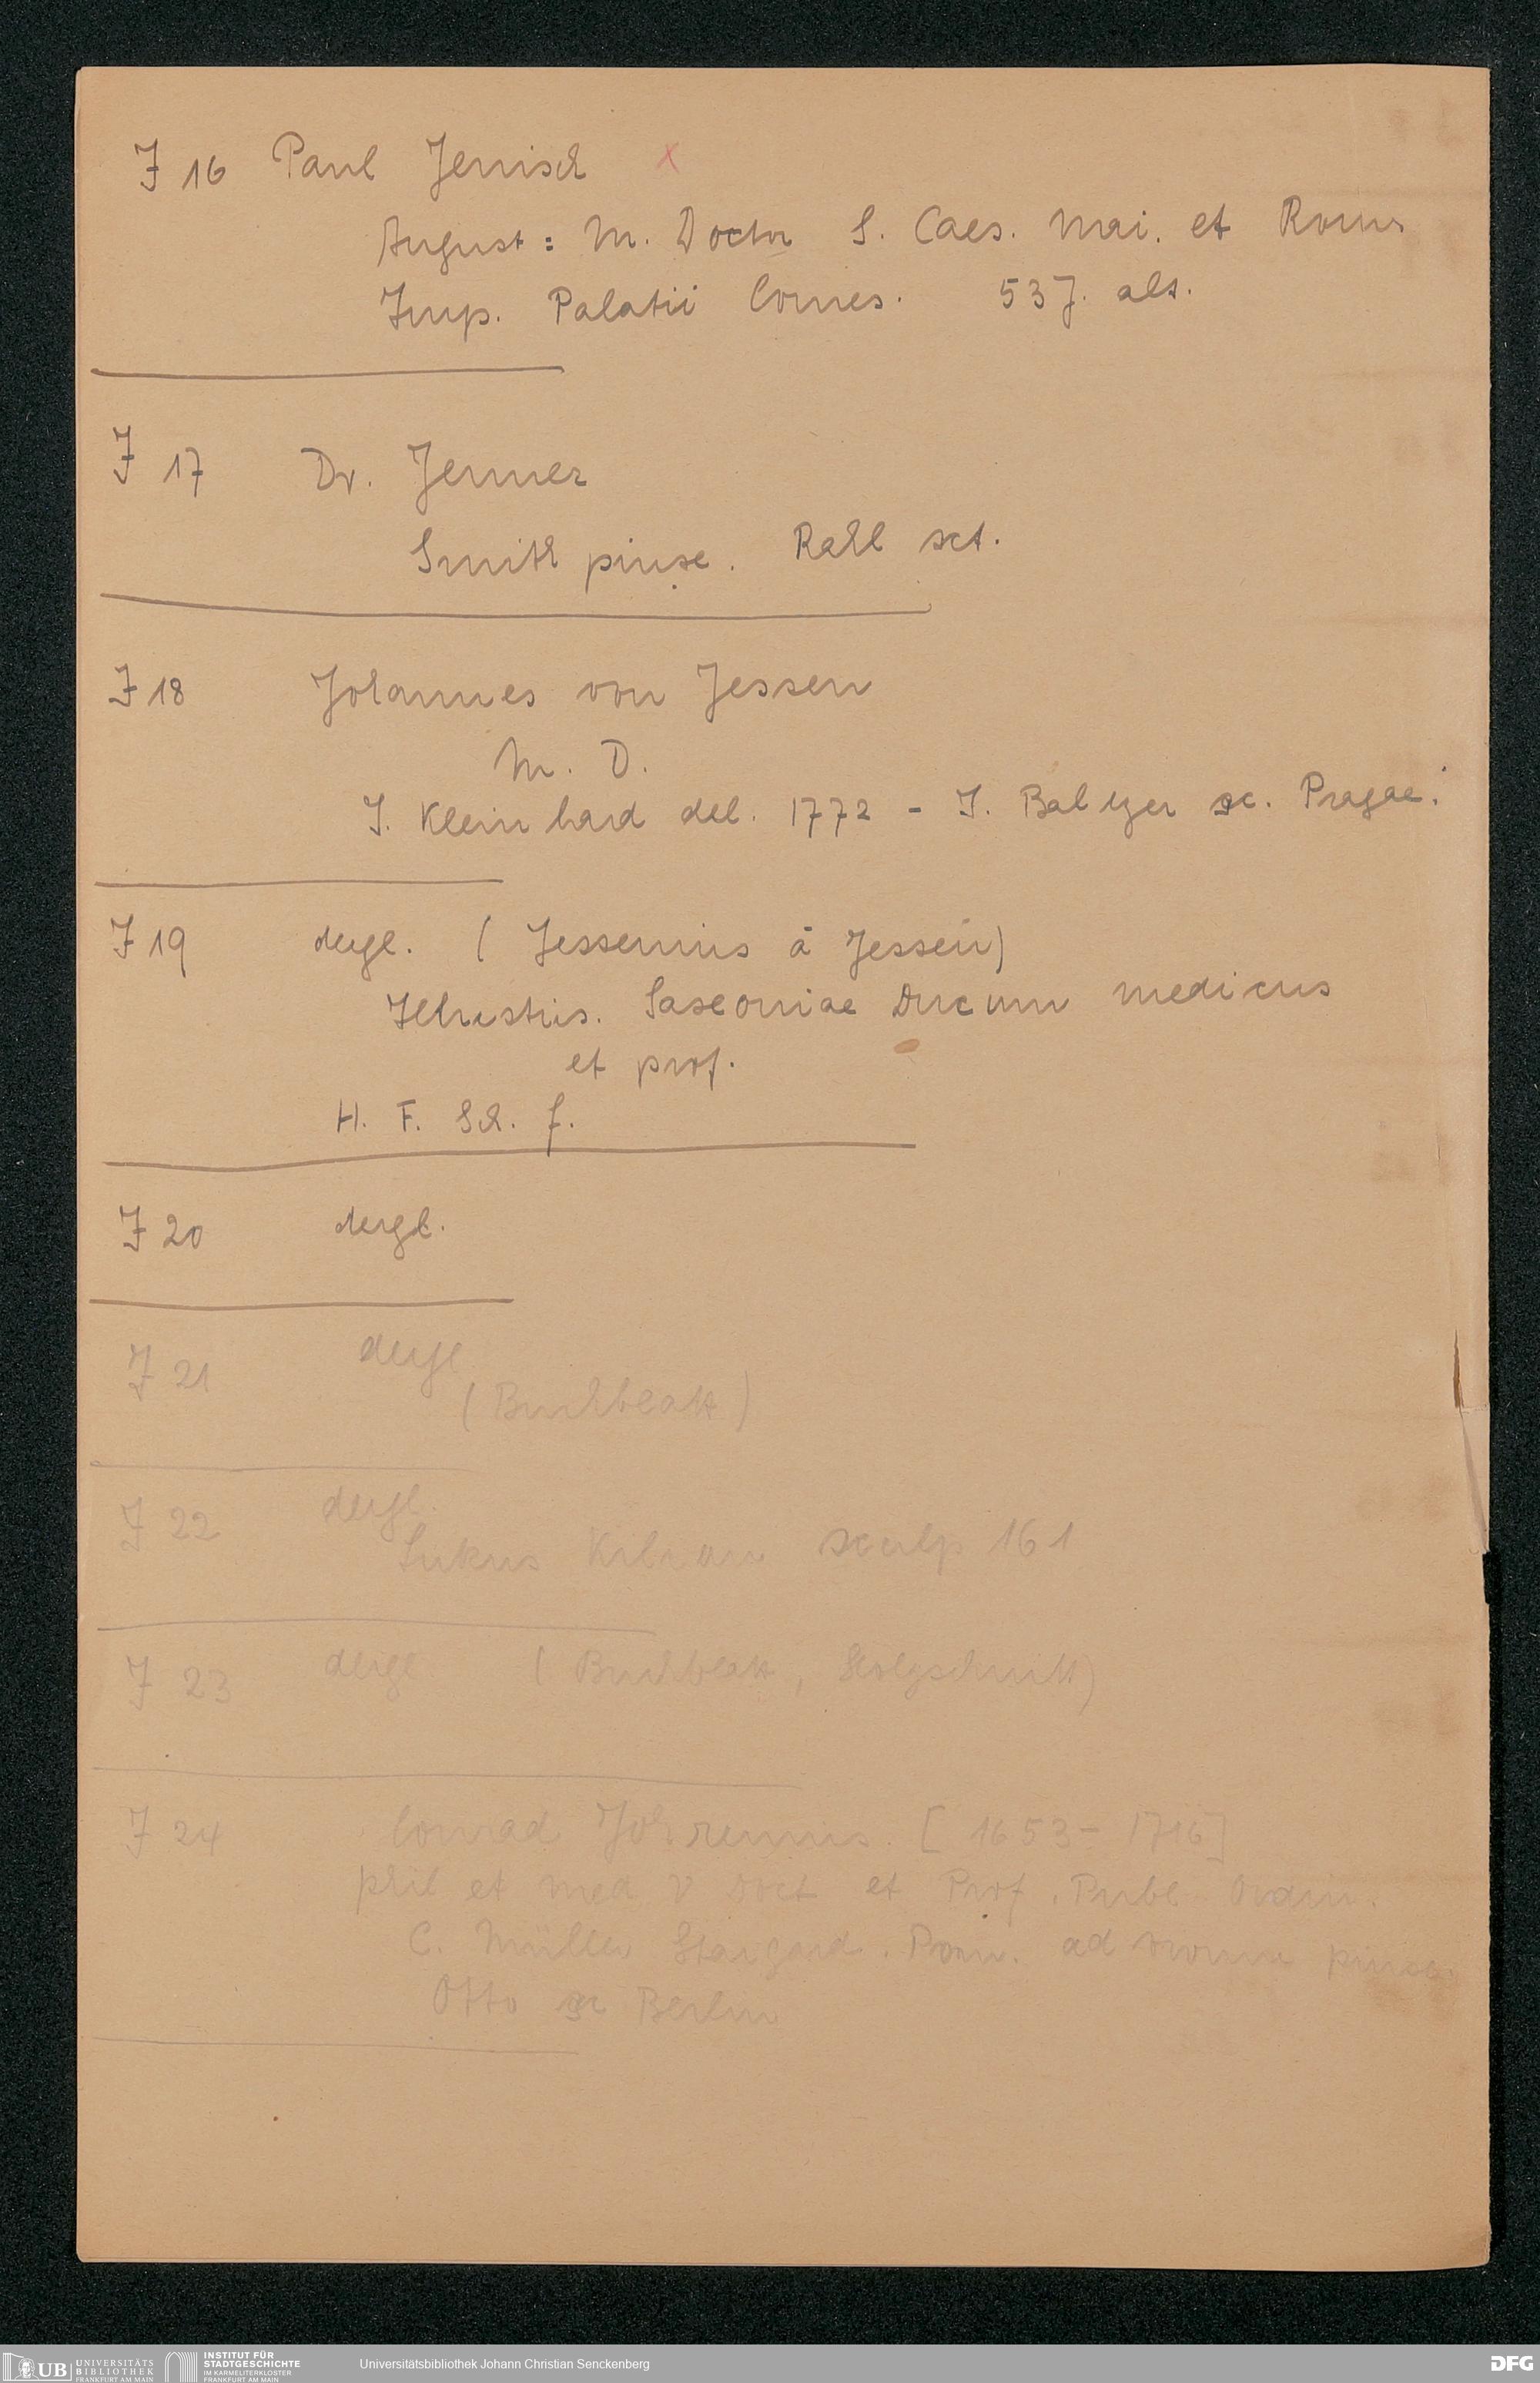 J 16 Paul Jenisch x
August: M. Doctor S. Caes. Mai. et Roms
Imp. Palatii Comes. 53 J. alt.
J 17 Dr. Jenner
Smith pinxe. Rahl sct.
J 18 Johannes von Jessen
M. D.
J. Kleinhard del. 1772 - J. Balzer sc. Pragae.
J 19 dergl. (Jessenius à Jessen)
Illustris. Saxoniae Ducum medicus
et prof.
H. F. Sch. f.
J 20 dergl.
J 21 dergl
(Buchblatt)
J 22 dergl.
Lukas Kilian sculp 161
J 23 dergl. (Buchblatt, Holzschnitt)
J 24 Conrad Johrenius. [1653-1716]
phil et med D Doct et Prof. Publ Ordin.
C. Müller Stargard. Pom. ad vivum pinxe
Otto sc Berlin
UB UNIVERSITÄTS
BIBLIOTHEK
FRANKFURT AM MAIN
INSTITUT FÜR
STADTGESCHICHTE
IM KARMELITERKLOSTER
FRANKFURT AM MAIN
Universitätsbibliothek Johann Christian Senckenberg
DFG